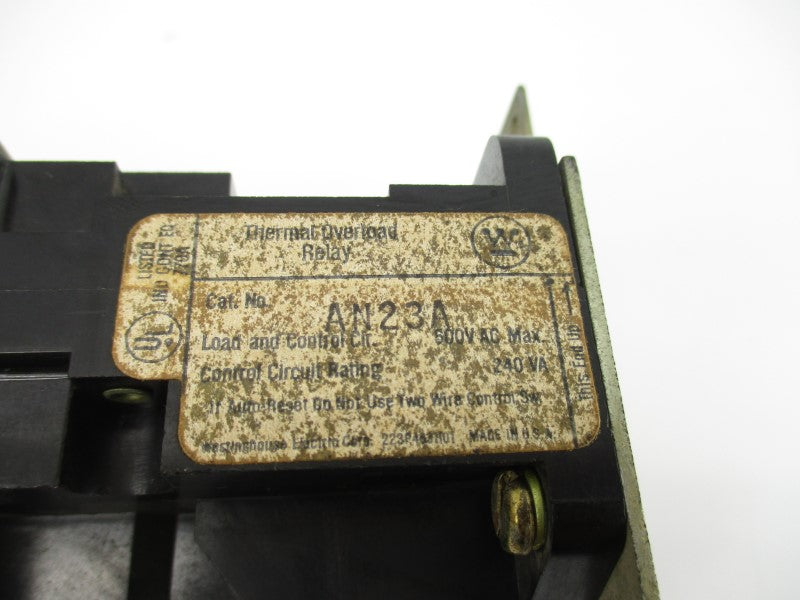 Thermal Overload
Relay
W
LISTED
IND CONT EQ
UL
Cat. No. AN23A
Load and Control Cit. 600V AC Max.
Control Circuit Rating 240 VA
If Auto-Reset Do Not Use Two Wire Control Sw.
Westinghouse Electric Corp. MADE IN U.S.A.
This End Up